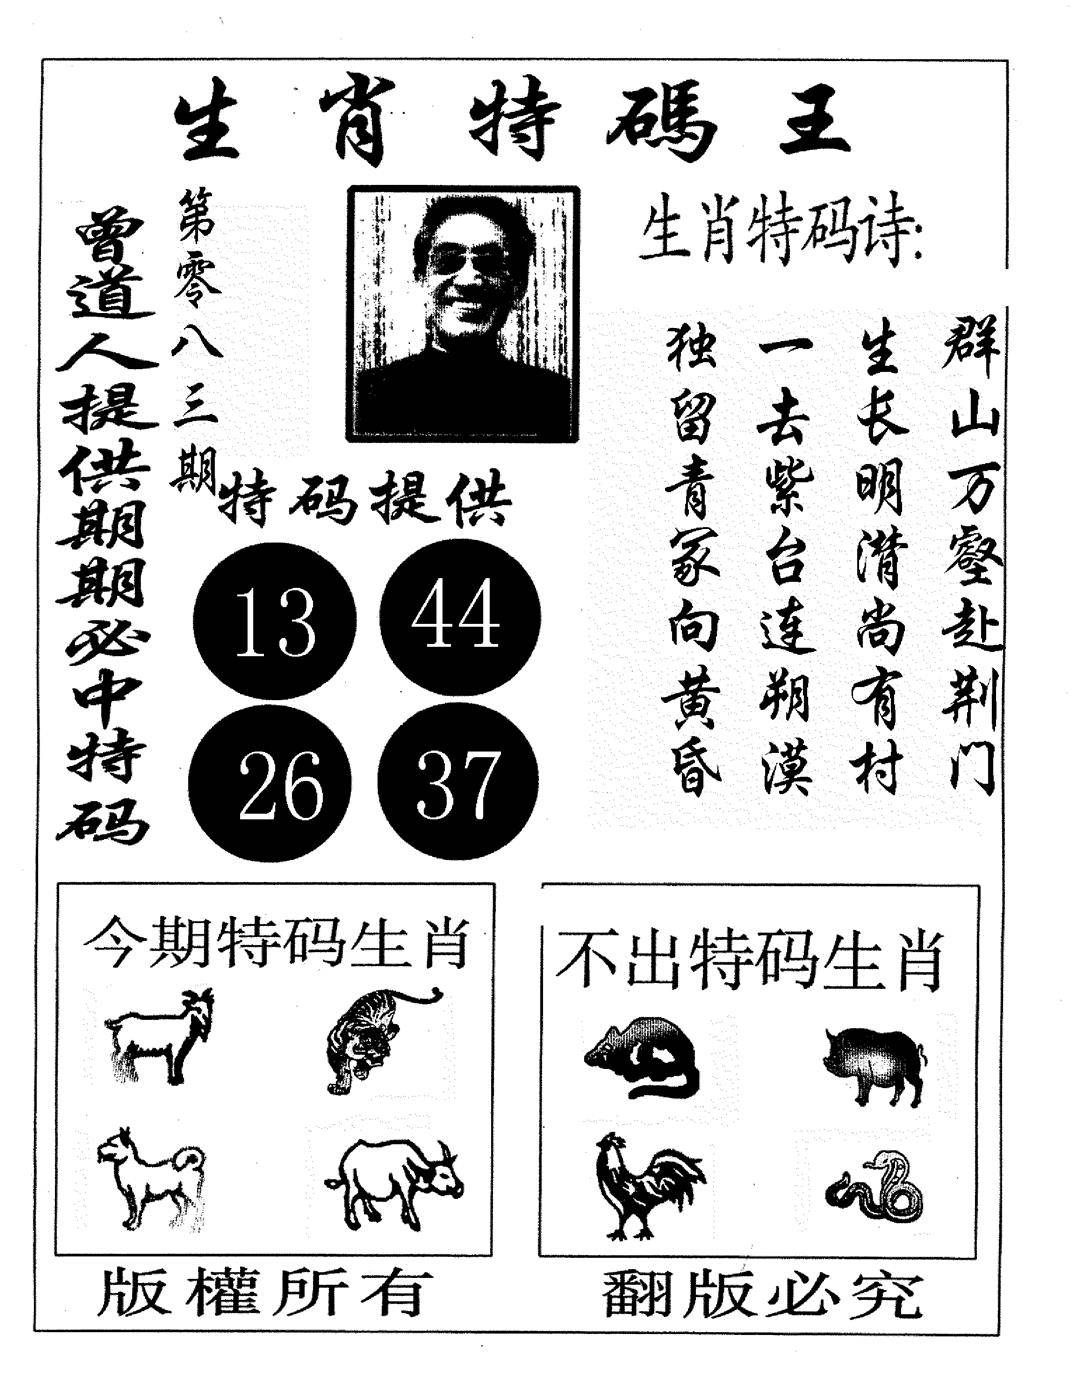 生肖特碼王
曾道人提供期期必中特码
第零八三期
生肖特码诗:
群山万壑赴荆门
生长明潜尚有村
一去紫台连朔漠
独留青冢向黄昏
特码提供
13 44
26 37
今期特码生肖
不出特码生肖
版權所有
翻版必究